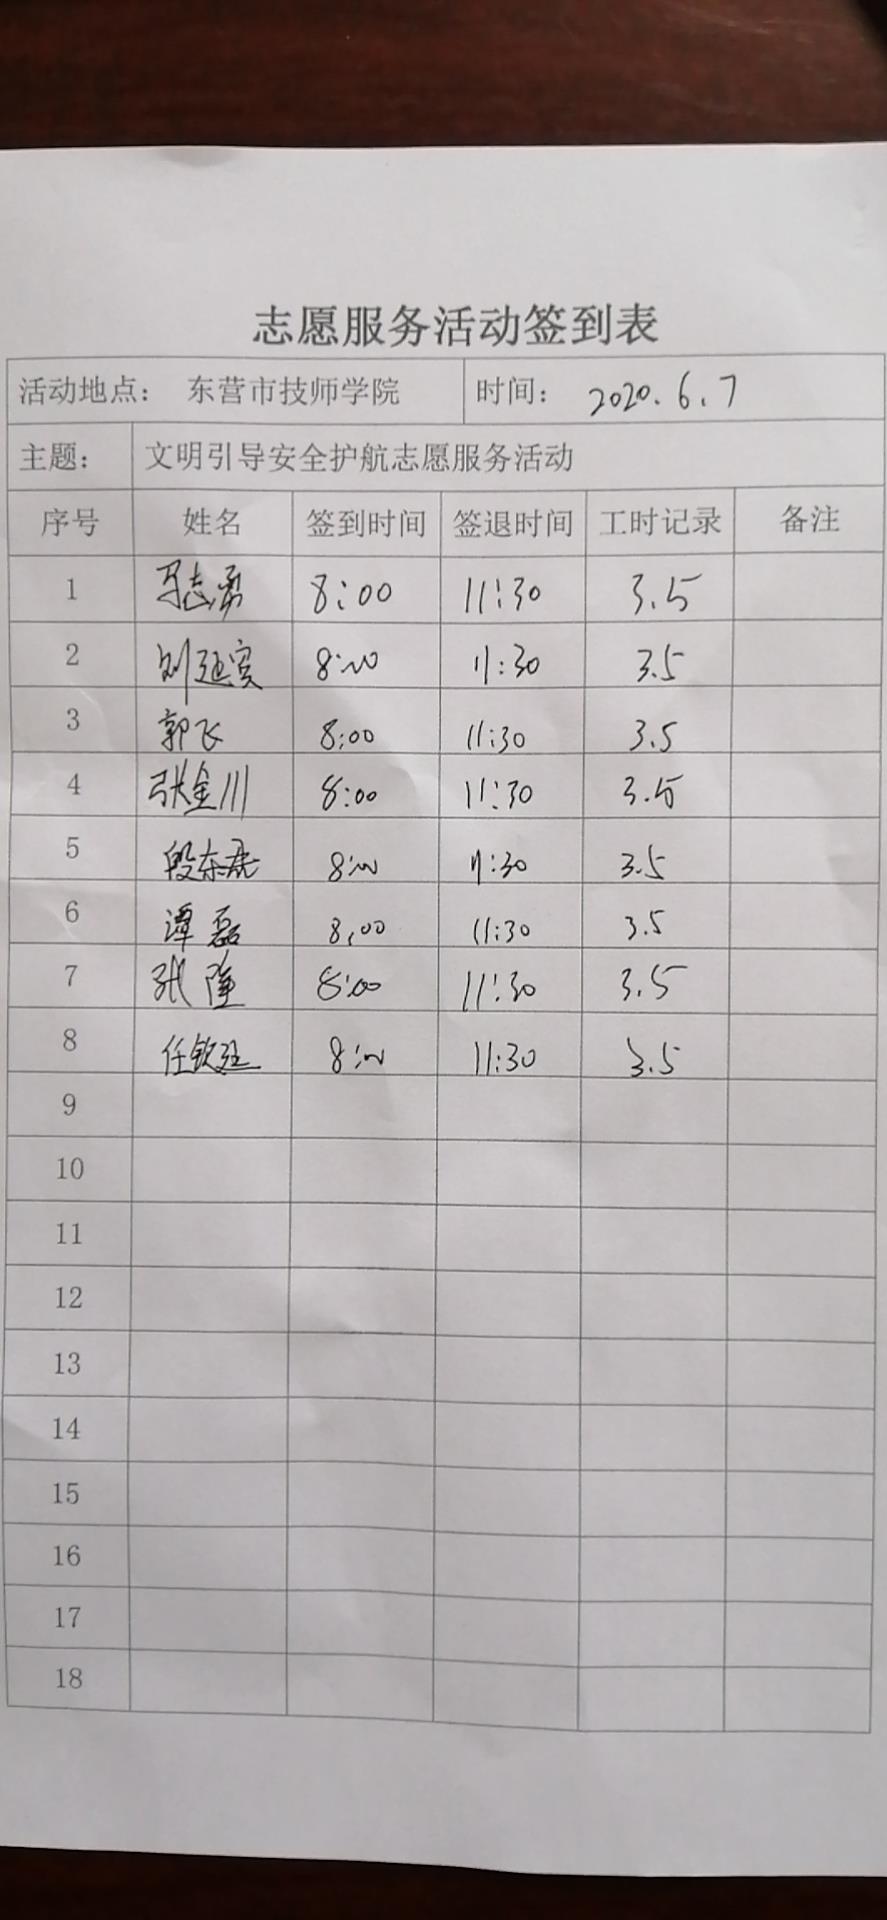 志愿服务活动签到表
活动地点： 东营市技师学院 时间： 2020.6.7
主题： 文明引导安全护航志愿服务活动
序号 姓名 签到时间 签退时间 工时记录 备注
1 马志勇 8:00 11:30 3.5
2 刘延宾 8:00 11:30 3.5
3 郭飞 8:00 11:30 3.5
4 张金川 8:00 11:30 3.5
5 段东 8:00 11:30 3.5
6 谭磊 8:00 11:30 3.5
7 张隆 8:00 11:30 3.5
8 任钦 8:00 11:30 3.5
9
10
11
12
13
14
15
16
17
18